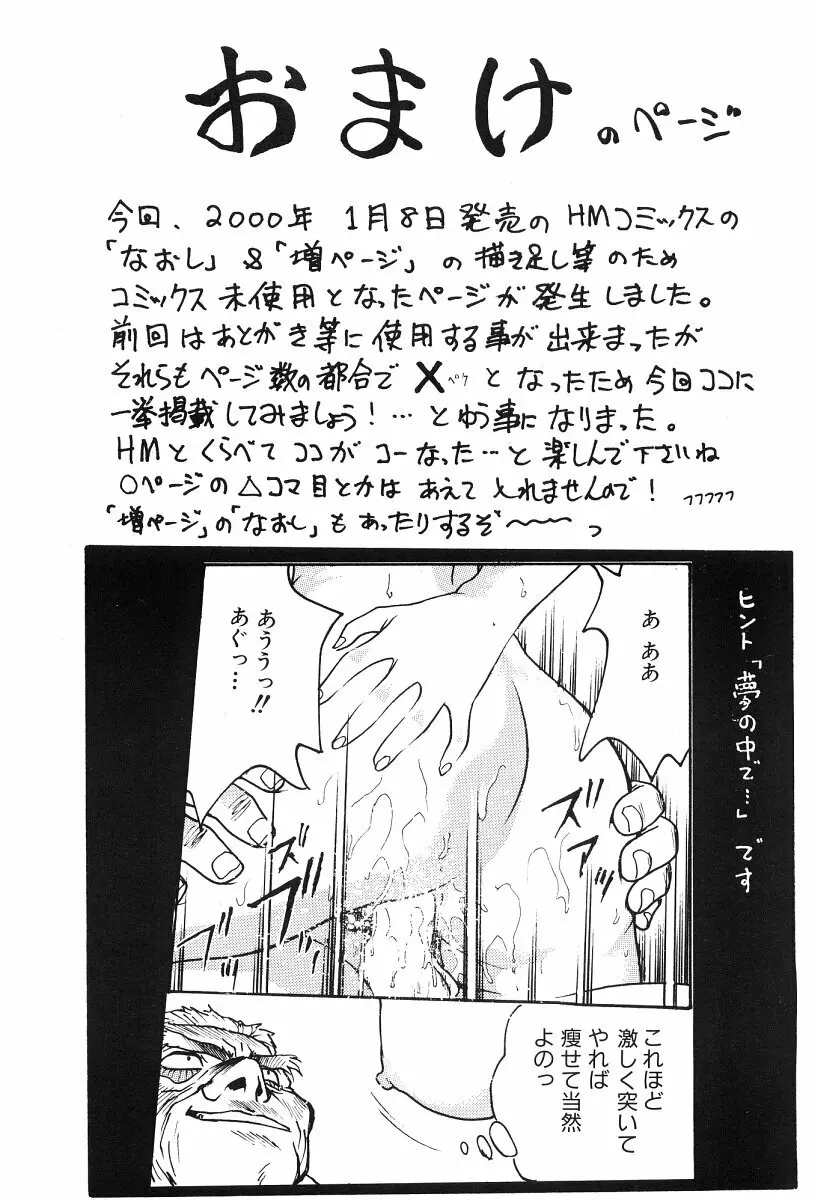 おまけのページ
今回、2000年 1月8日発売のHMコミックスの
「なおし」&「増ページ」の描き足し等のため
コミックス未使用となったページが発生しました。
前回はあとがき等に使用する事が出来まったが
それらもページ数の都合で Xペケ となったため今回ココに
一挙掲載してみましょう!…とゆう事になりました。
HMとくらべてココがコーなった…と楽しんで下さいね
○ページの△コマ目とかは あえてふれませんので! フフフフフ
「増ページ」の「なおし」もあったりするぞ〜〜〜っ
ヒント「夢の中で…」です
あ ああ
あううっ!!
あぐっ…
ズッ
ズブッ
ズッ
ズッ
これほど
激しく突いて
やれば
痩せて当然
よのっ